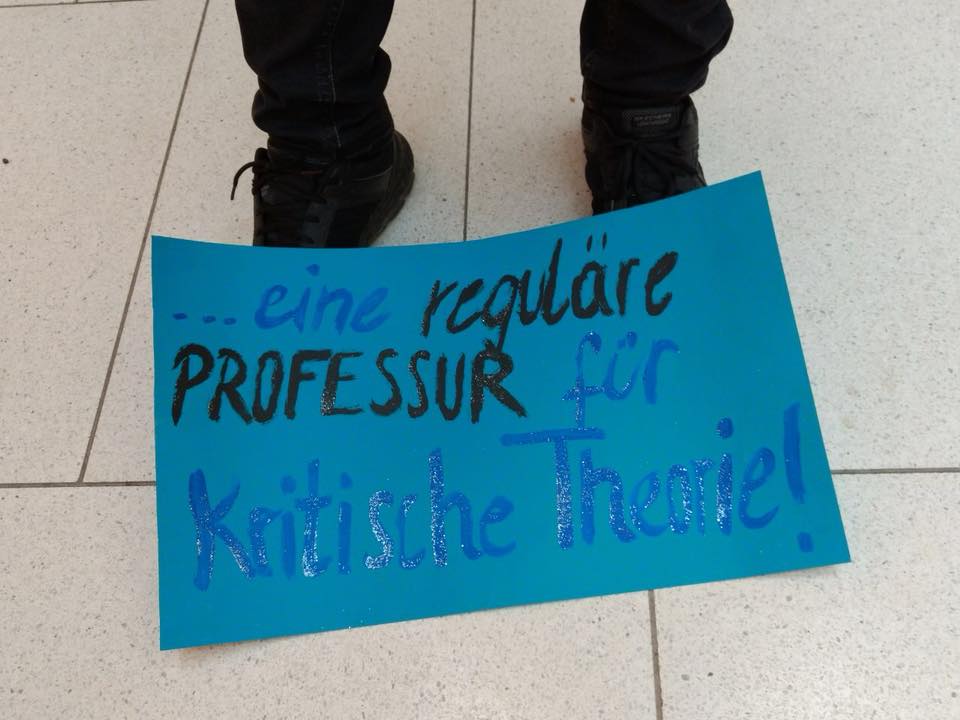 ... eine reguläre
PROFESSUR für
Kritische Theorie!